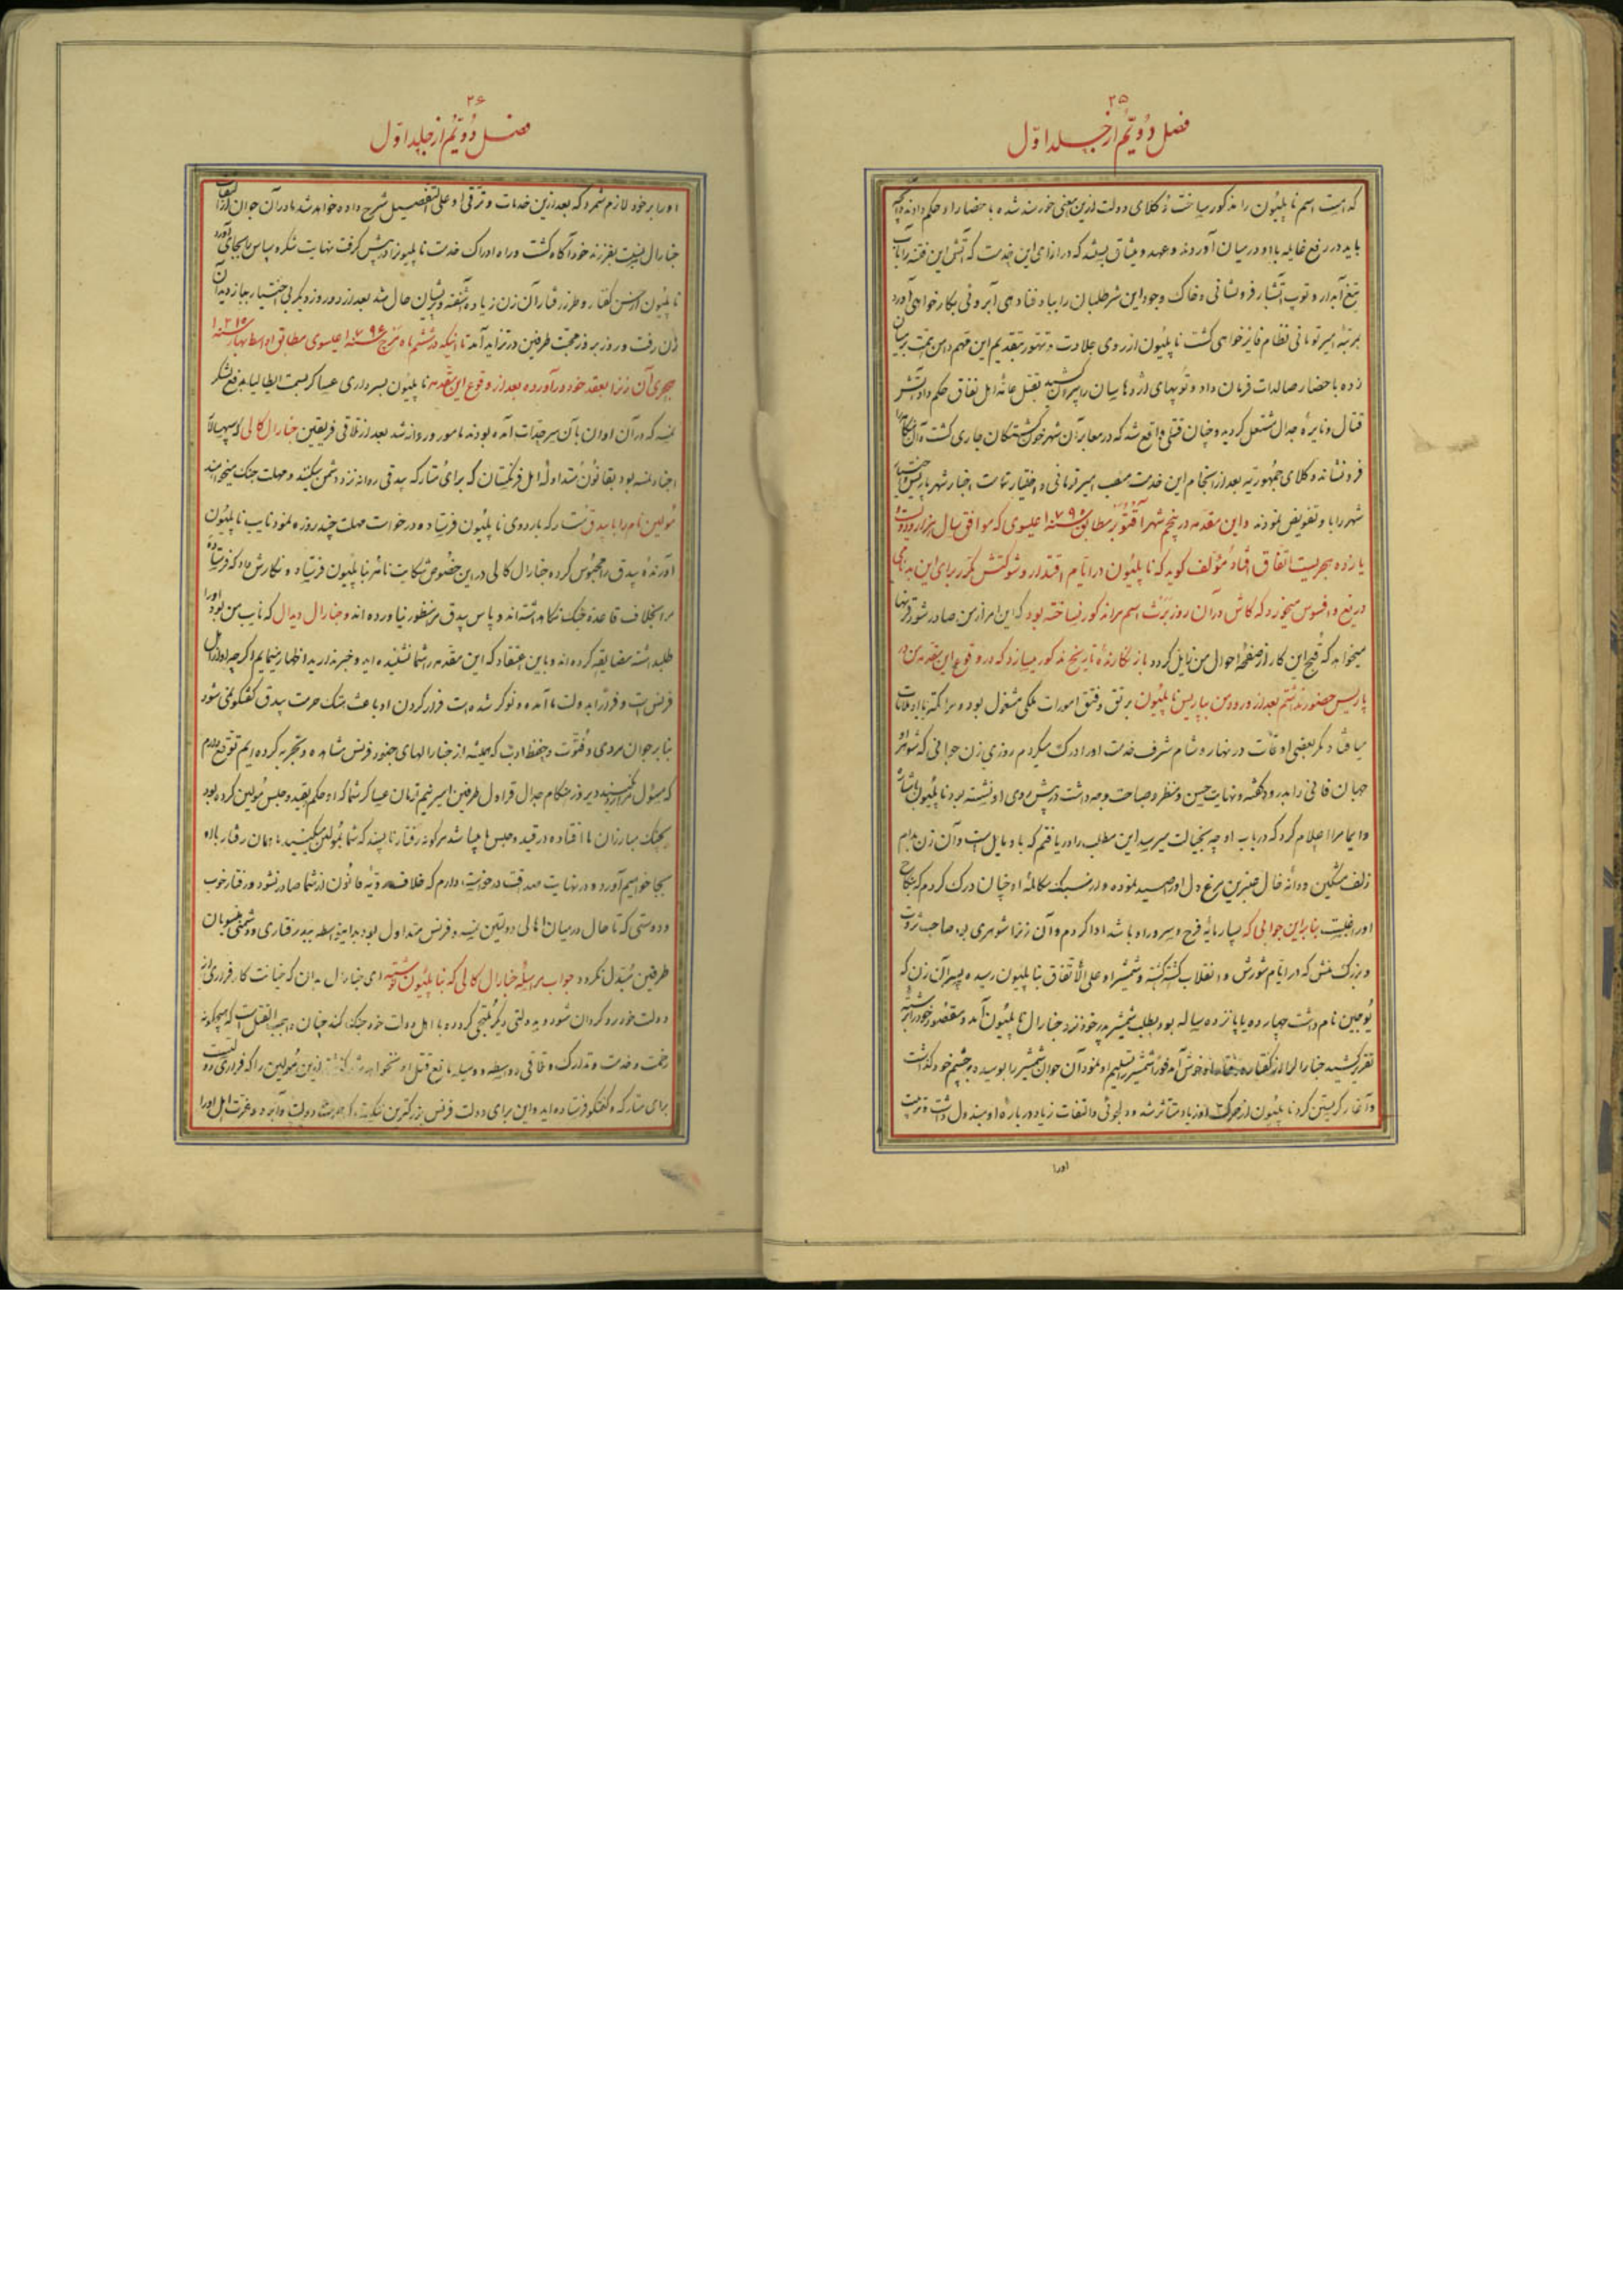 ۲۵
فصل دویم از جلد اول
که هست اسم ناپلیون را مذکور ساخت وکلای دولت ازین معنی خورسند شده باحضار او حکم دادند
باید در رفع غایله با او در میان آوردند و عهد و میثاق بستند که در ازای این خدمت که آتش این فتنه را
تیغ آبدار و توپ آتشبار فرونشانی و خاک وجود این شرطلبان را بباد فنا دهی آبروئی بکار خواهی آورد
برتبه امیر تومانی نظام فایز خواهی گشت ناپلیون از روی جلادت و تهور بتقدیم این مهم دامن همت بر میان
زده باحضار صالدات فرمان داد و توپهای اژدها سان را بیرون کشید بقتل عامه اهل نفاق حکم داد آتش
قتال و نایره جدال مشتعل گردید و چنان قتلی واقع شد که در معابر آن شهر خون کشتگان جاری گشت
فرونشاند وکلای جمهوریه بعد از انجام این خدمت منصب امیر تومانی و اختیار تمامت
شهر را باو تفویض نمودند و این مقدمه در پنجم شهر اقتوبر مطابق سنه ۱۷۹۶ عیسوی که موافق سال هزار و دویست
یازده هجریست اتفاق افتاد مؤلف کوید که ناپلیون در ایام اقتدار و شوکتش مکرر برای این بدنامی
دریغ و افسوس میخورد که کاش در آن روز برنت اسم مرا مذکور نیساخته بود که این امر از من صادر شود
میخواهد که قبح این کار از صفحه احوال من زایل گردد باز نگارنده تاریخ مذکور میسازد که در وقوع این مقدمه من در
پاریس حضور نداشتم بعد از ورود من بپاریس ناپلیون برتق و فتق امورات ملکی مشغول بود و مرا کمتر با او ملاقات
میافتاد مگر بعضی اوقات در نهار و شام شرف خدمت او را درک میکردم روزی زن جوانی که شوهر او
جهان فانی را بدرود گفته و نهایت حسن و منظر و صباحت وجه داشت در پیش روی او نشسته بود ناپلیون باشاره
و ایما مرا اعلام کرد که در باب او چه بخیالت میرسد این مطلب را دریافتم که باو مایل است و آن زن بدام
زلف مشکین و دانه خال عنبرین مرغ دل او را صید نموده و از سبک مکالمه او چنان درک کردم که بنکاح
او راغبست بنابراین جوابی که سرمایه فرح و سرور او باشد ادا کردم و آن زن را شوهری بود صاحب ثروت
و بزرگ منش که در ایام شورش و انقلاب کشته گشته و شمشیر او علی الاتفاق بناپلیون رسیده پسر آن زن که
یوجین نام داشت چهارده یا پانزده ساله بود بطلب شمشیر پدر خود نزد جنارال ناپلیون آمد و مقصود خود را برشته
تقریر کشید جنارال را از گفتار او خوش آمد فوراً شمشیر را تسلیم او نمود آن جوان شمشیر را بوسیده و بچشم خود گذاشت
و آغاز گریستن کرد ناپلیون از حرکت او زیاد متأثر شد و دلجوئی و التفات زیاد درباره او مبذول داشت و تربیت
اورا
۲۶
فصل دویم از جلد اول
او را بر خود لازم شمرد که بعد ازین خدمات و ترقی او علی التفصیل شرح داده خواهد شد مادر آن جوان از التفات
جنارال نسبت بفرزند خود آگاه گشت و راه ادراک خدمت ناپلیون را در پیش گرفت نهایت شکر و سپاس بجای آورد
ناپلیون از حسن گفتار و طرز رفتار آن زن زیاده آشفته و پریشان حال شد بعد از دو روز دیگر بی اختیار بباز دید آن
زن رفت و روز بروز محبت طرفین در تزاید آمد تا اینکه در ششم ماه مرج سنه ۱۷۹۶ عیسوی مطابق اواسط بهار سنه ۱۲۱۵
هجری آن زن را بعقد خود درآورده بعد از وقوع این مقدمه ناپلیون بسرداری عساکر بسمت ایطالیا بدفع لشکر
نمسه که در آن اوان بآن سرحدات آمده بودند مامور و روانه شد بعد از تلاقی فریقین جنارال کالی که سپهسالار
اجناد نمسه بود بقانون متداوله اهل فرنگستان که برای متارکه بیدقی روانه نزد دشمن میکنند و مهلت جنگ میخواهند
مولین نام را با بیدق متارکه باردوی ناپلیون فرستاده درخواست مهلت چند روزه نمود نایب ناپلیون
آورنده بیدق را محبوس کرده جنارال کالی در این خصوص شکایت نامه بناپلیون فرستاد و نگارش داد که فرستاده
مرا بخلاف قاعده جنگ نگاه داشته اند و پاس بیدق مرا منظور نیاورده اند و جنارال دیدال که نایب من بود او را
طلبداشته مضایقه کرده اند و باین اعتقاد که این مقدمه را شما نشنیده اید و خبر ندارید اظهار مینمایم اگرچه او از اهل
فرنس است و فراراً بدولت ما آمده و نوکر شده است فرار کردن او باعث هتک حرمت بیدق گفتگو نمی شود
بنابر جوان مردی و فتوت و حفظ ادب که همیشه از جنارالهای جنود فرنس مشاهده و تجربه کرده ایم توقع دارم
که دیروز هنگام جدال قراول طرفین امیر نیم تومان عساکر شما که او حکم بقید و حبس مولین کرده بود
بچنگ مبارزان ما افتاده در قید و حبس ما میباشد هر گونه رفتار ناپسند که شما بمولین میکنید ما همان رفتار باو
بجا خواهیم آورد و در نهایت صداقت درخواست دارم که خلاف رویه قانون از شما صادر نشود و رفتار خوب
و دوستی که تا حال در میان اهالی دولتین نمسه و فرنس متداول بود بدینواسطه ببدرفتاری و دشمنی
طرفین مبدل نگردد جواب مراسله جنارال کالی که بناپلیون نوشته ای جنارال بدان که خیانت کار فراری از
دولت خود روگردان شود و بدولتی دیگر ملتجی گردد و با اهل دولت خود جنگ کند چنان واجب القتل است که هیچگونه
زحمت و خدمت و تدارک و تلافی و واسطه و وسیله مانع قتل او نخواهد شد گذشته ازین مولین را که فراری
برای متارکه و گفتگو فرستاده اید و این برای دولت فرنس بزرگترین دولت و آبرو و عزت اهل او را